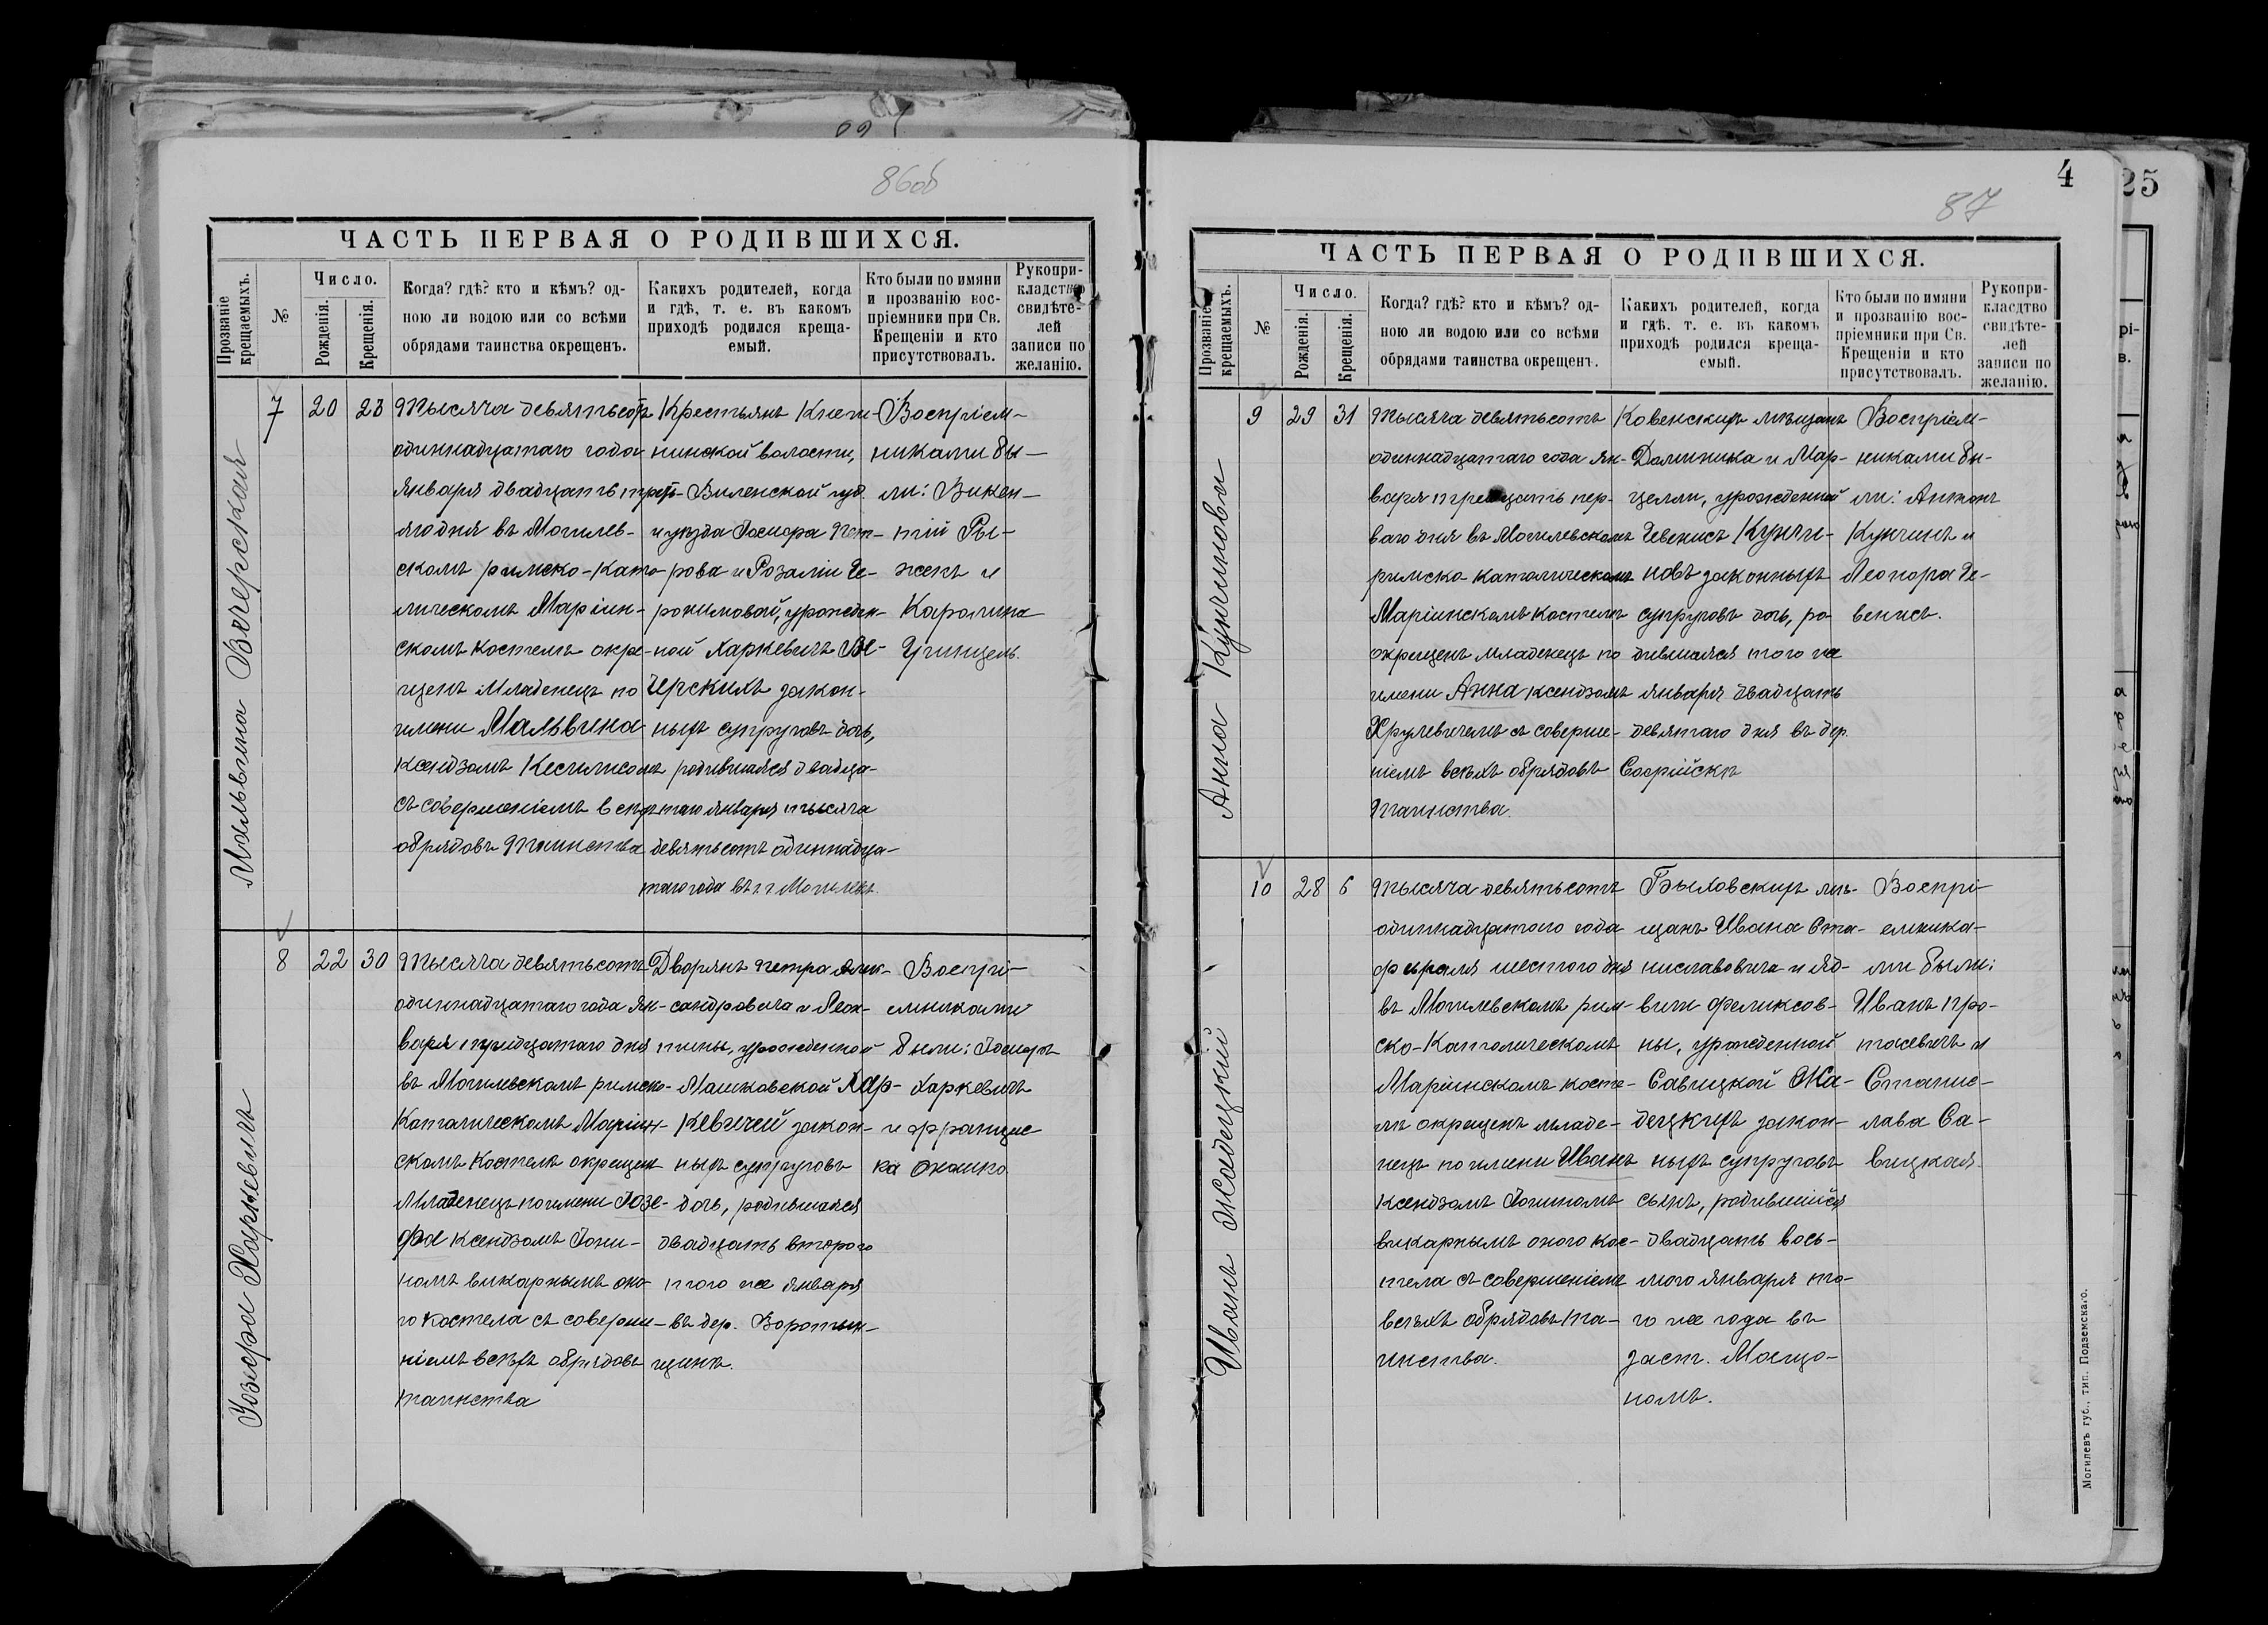 86об
ЧАСТЬ ПЕРВАЯ О РОДИВШИХСЯ.
Прозваніе крещаемыхъ.
№
Число.
Рожденія.
Крещенія.
Когда? гдѣ? кто и кѣмъ? од-
ною ли водою или со всѣми
обрядами таинства окрещенъ.
Какихъ родителей, когда
и гдѣ, т. е. въ какомъ
приходѣ родился креща-
емый.
Кто были по имяни
и прозванію вос-
пріемники при Св.
Крещеніи и кто
присутствовалъ.
Рукопри-
кладство
свидѣте-
лей
записи по
желанію.
Мальвина Вечерская
7
20
23
Тысяча девятьсотъ
одиннадцатаго года
января двадцать треть-
яго дня въ Могилев-
скомъ римско-като-
лическомъ Маріин-
скомъ костелѣ окре-
щенъ младенецъ по
имени Мальвина
ксендзомъ
съ совершеніемъ всѣхъ
обрядовъ Таинства
Крестьянъ
нинской волости,
Виленской губ.
и уѣзда Іосифа Пет-
рова и Розаліи Іе-
ронимовой, урожден-
ной Харкевичъ Ве-
черскихъ закон-
ныхъ супруговъ дочь,
родившаяся двадца-
таго января тысяча
девятьсотъ одиннадца-
таго года въ г. Могилевѣ.
Воспріем-
никами бы-
ли: Викен-
тій Ры-
жекъ и
Каролина
8
22
30
Юзефа Харкевичъ
Тысяча девятьсотъ
одиннадцатаго года ян-
варя тридцатаго дня
въ Могилевскомъ римско-
Католическомъ Маріин-
скомъ костелѣ окрещенъ
Младенецъ по имени Юзе-
фа ксендзомъ Іоки-
помъ викарнымъ оно-
го костела съ соверше-
ніемъ всѣхъ обрядовъ
таинства
Дворянъ Петра Алек-
сандровича и Леон-
тины, урожденной
Машковской Хар-
кевичей закон-
ныхъ супруговъ
дочь, родившаяся
двадцать второго
того же января
въ дер. Воротын-
щинѣ.
Воспрі-
емниками
были: Іосифъ
Харкевичъ
и Францис
ка
4
87
ЧАСТЬ ПЕРВАЯ О РОДИВШИХСЯ.
Прозваніе крещаемыхъ.
№
Число.
Рожденія.
Крещенія.
Когда? гдѣ? кто и кѣмъ? од-
ною ли водою или со всѣми
обрядами таинства окрещенъ.
Какихъ родителей, когда
и гдѣ, т. е. въ какомъ
приходѣ родился креща-
емый.
Кто были по имяни
и прозванію вос-
пріемники при Св.
Крещеніи и кто
присутствовалъ.
Рукопри-
касдтво
свидѣте-
лей
записи по
желанію.
Анна Кунчинова
9
29
31
Тысяча девятьсотъ
одиннадцатаго года ян-
варя тридцать пер-
ваго дня въ Могилевскомъ
римско-католическомъ
Маріинскомъ костелѣ
окрещенъ младенецъ по
имени Анна ксендзомъ
Хрулевичемъ съ соверше-
ніемъ всѣхъ обрядовъ
Таинства.
Ковенскихъ мѣщанъ
Доминика и Мар-
целли, урожденной
Девенисъ Кунчи-
новъ законныхъ
супруговъ дочь, ро-
дившаяся того же
января двадцать
девятаго дня въ дер.
Воспріем-
никами бы-
ли: Антонъ
Кунчинъ и
Леонора Де-
венисъ.
Иванъ Жадецкій
10
28
6
Тысяча девятьсотъ
одиннадцатого года
февраля шестого дня
въ Могилевскомъ рим-
ско-Католическомъ
Маріинскомъ косте-
лѣ окрещенъ младе-
нецъ по имени Иванъ
ксендзомъ
викарнымъ оного кос-
тела съ совершеніемъ
всѣхъ обрядовъ та-
инства.
Быховскихъ мѣ-
щанъ Ивана Ста-
ниславовича и Яд-
виги Феликсов-
ны, урожденной
Савицкой Жа-
децкихъ закон-
ныхъ супруговъ
сынъ, родившійся
двадцать вось-
мого января то-
го же года въ
заст.
Воспрі-
емника-
ми были:
Иванъ Про-
тасевичъ и
Станис-
лава Са-
вицкая.
Могилевъ губ., тип. Подземскаго.
25
рі-
в.